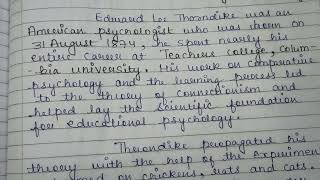 Edward Lee Thorndike was an
American psychologist who was born on
31 August 1874, he spent nearly his
entire career at Teachers college, Colum-
-bia university. His work on comparative
psychology and the learning process led
to the theory of connectionism and
helped lay the scientific foundation
for educational psychology.
Thorondike propagated his
theory with the help of the experimen
on chickens, rats and cats.